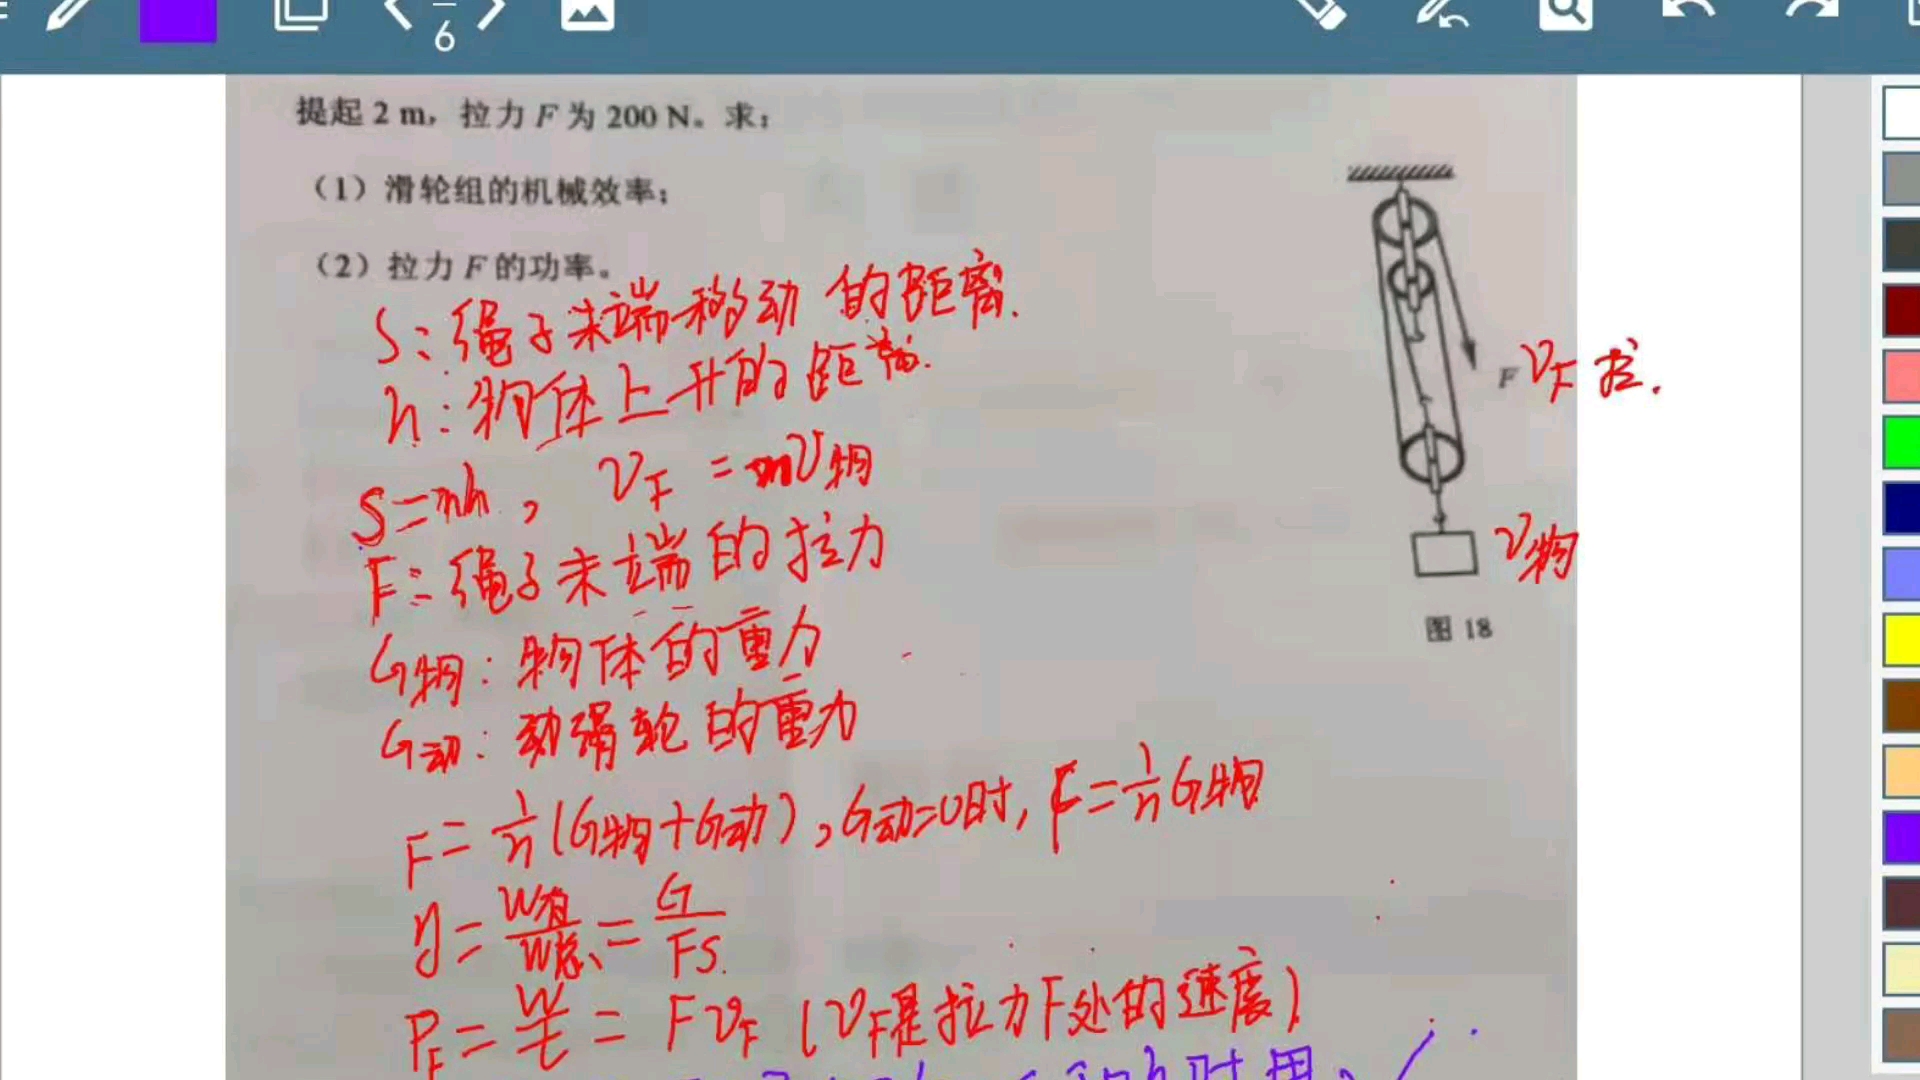 6
提起 2 m，拉力 F 为 200 N。求：
（1）滑轮组的机械效率；
（2）拉力 F 的功率。
S：绳子末端移动的距离.
h：物体上升的距离.
F VF 拉.
S=nh， VF = nV物
F：绳子末端的拉力
V物
图 18
G物：物体的重力
G动：动滑轮的重力
F = 1/n (G物+G动)，G动=0时，F = 1/n G物
η = W有/W总 = G/FS.
PF = W/t = FVF (VF是拉力F处的速度)